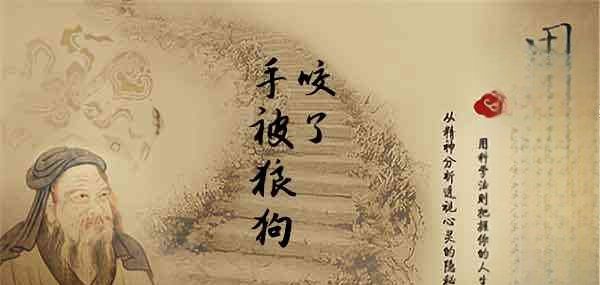 手被狼狗
咬了
从精神分析透视心灵的隐秘
用科学法则把握你的人生